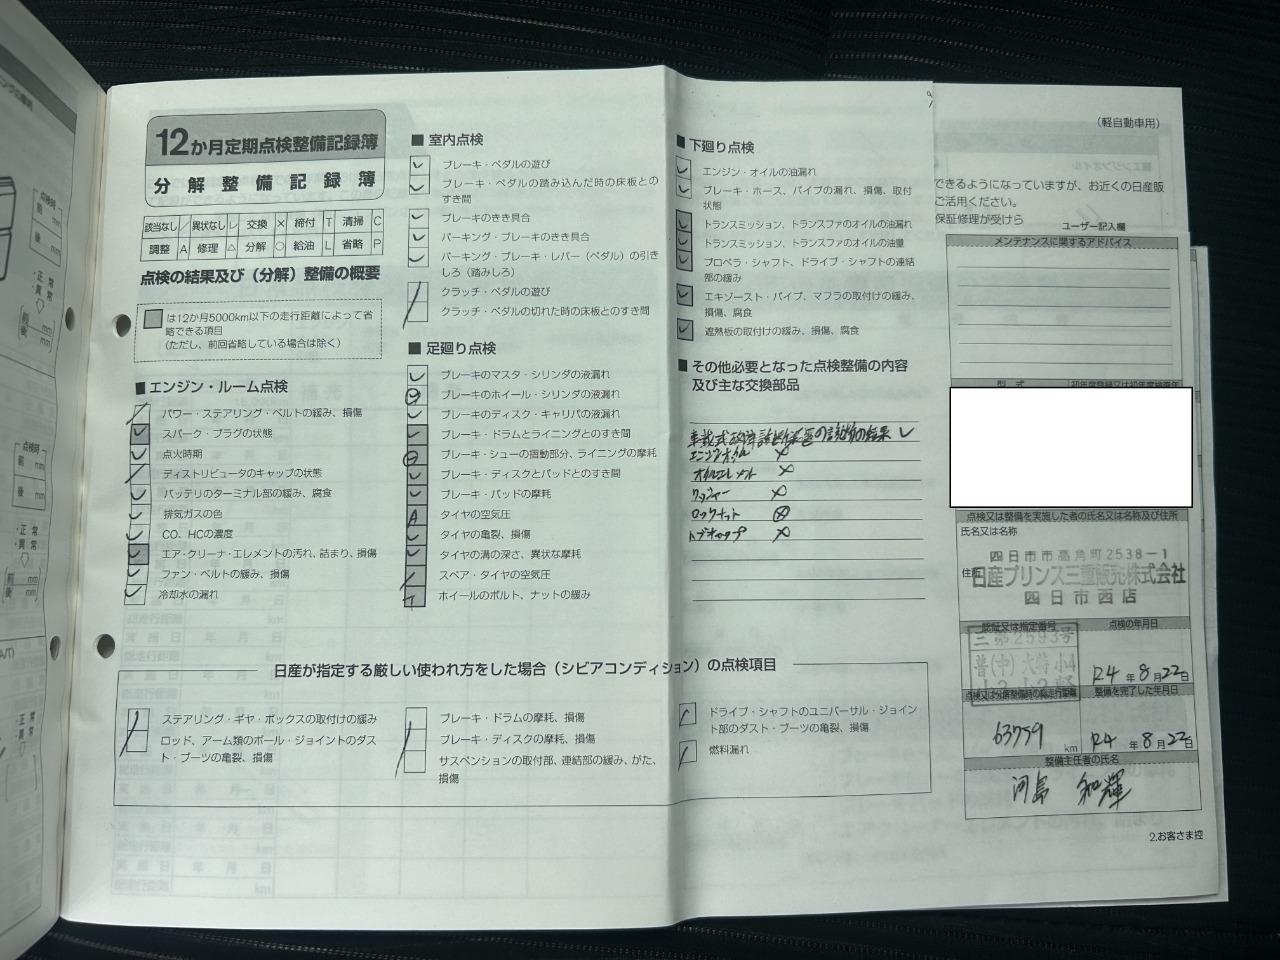 12か月定期点検整備記録簿
分解整備記録簿
該当なし ／ 異状なし レ 交換 × 締付 T 清掃 C
調整 A 修理 △ 分解 ○ 給油 L 省略 P
点検の結果及び（分解）整備の概要
は12か月5000km以下の走行距離によって省
略できる項目
（ただし、前回省略している場合は除く）
■ エンジン・ルーム点検
パワー・ステアリング・ベルトの緩み、損傷
スパーク・プラグの状態
点火時期
ディストリビュータのキャップの状態
バッテリのターミナル部の緩み、腐食
排気ガスの色
CO、HCの濃度
エア・クリーナ・エレメントの汚れ、詰まり、損傷
ファン・ベルトの緩み、損傷
冷却水の漏れ
■ 室内点検
ブレーキ・ペダルの遊び
ブレーキ・ペダルの踏み込んだ時の床板との
すき間
ブレーキのきき具合
パーキング・ブレーキのきき具合
パーキング・ブレーキ・レバー（ペダル）の引き
しろ（踏みしろ）
クラッチ・ペダルの遊び
クラッチ・ペダルの切れた時の床板とのすき間
■ 足廻り点検
ブレーキのマスタ・シリンダの液漏れ
ブレーキのホイール・シリンダの液漏れ
ブレーキのディスク・キャリパの液漏れ
ブレーキ・ドラムとライニングとのすき間
ブレーキ・シューの摺動部分、ライニングの摩耗
ブレーキ・ディスクとパッドとのすき間
ブレーキ・パッドの摩耗
A タイヤの空気圧
タイヤの亀裂、損傷
タイヤの溝の深さ、異状な摩耗
スペア・タイヤの空気圧
T ホイールのボルト、ナットの緩み
■ 下廻り点検
エンジン・オイルの油漏れ
ブレーキ・ホース、パイプの漏れ、損傷、取付
状態
トランスミッション、トランスファのオイルの油漏れ
トランスミッション、トランスファのオイルの油量
プロペラ・シャフト、ドライブ・シャフトの連結
部の緩み
エキゾースト・パイプ、マフラの取付けの緩み、
損傷、腐食
遮熱板の取付けの緩み、損傷、腐食
■ その他必要となった点検整備の内容
及び主な交換部品
車載式故障診断装置の診断の結果 レ
エンジンオイル ×
オイルエレメント ×
ワッシャー ×
ロックナット ⊗
ハブキャップ ×
日産が指定する厳しい使われ方をした場合（シビアコンディション）の点検項目
ステアリング・ギヤ・ボックスの取付けの緩み
ロッド、アーム類のボール・ジョイントのダス
ト・ブーツの亀裂、損傷
ブレーキ・ドラムの摩耗、損傷
ブレーキ・ディスクの摩耗、損傷
サスペンションの取付部、連結部の緩み、がた、
損傷
ドライブ・シャフトのユニバーサル・ジョイン
ト部のダスト・ブーツの亀裂、損傷
燃料漏れ
（軽自動車用）
できるようになっていますが、お近くの日産販
ご活用ください。
保証修理が受けら
ユーザー記入欄
メンテナンスに関するアドバイス
型式
初年度登録又は初年度検査年
点検又は整備を実施した者の氏名又は名称及び住所
氏名又は名称
四日市市高角町2538-1
住所
日産プリンス三重販売株式会社
四日市西店
認証又は指定番号 点検の年月日
三第2593号
普(中)大特小4
R4 年 8 月 22 日
点検又は分解整備時の総走行距離 整備を完了した年月日
63759 km R4 年 8 月 22 日
整備主任者の氏名
河島 和輝
2.お客さま控